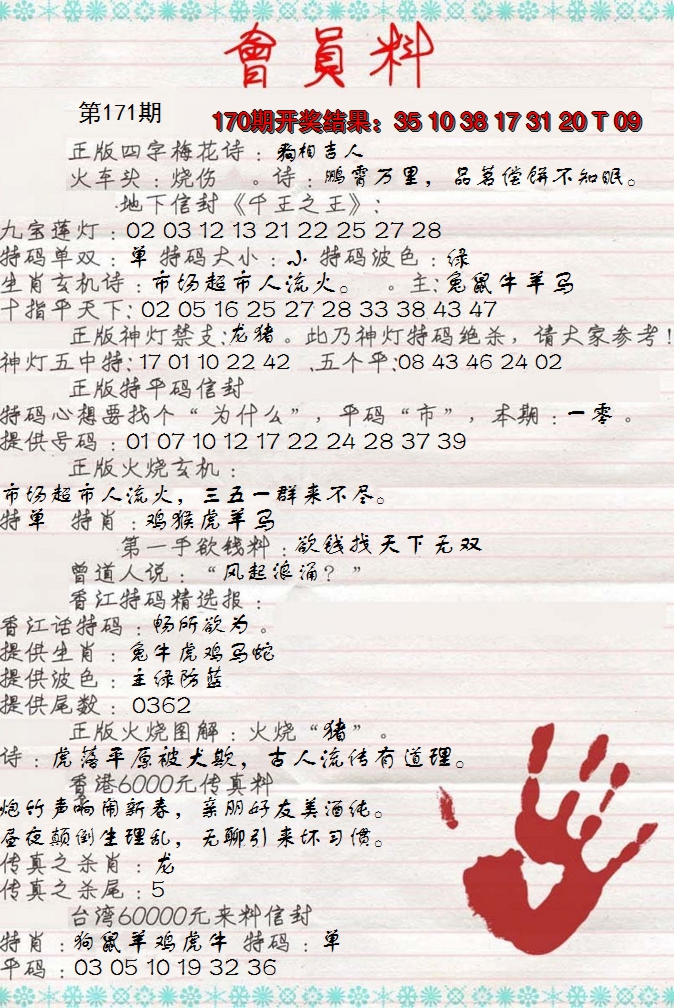 會員料
第171期
170期开奖结果：35 10 38 17 31 20 T 09
正版四字梅花诗：狗相吉人
火车头：烧伤 。诗：鹏霄万里，品茗偿饼不知眠。
地下信封《千王之王》：
九宝莲灯：02 03 12 13 21 22 25 27 28
特码单双：单 特码大小：小 特码波色：绿
生肖玄机诗：市场超市人流火。 。主：兔鼠牛羊马
十指平天下：02 05 16 25 27 28 33 38 43 47
正版神灯禁支：龙猪。此乃神灯特码绝杀，请大家参考！
神灯五中特：17 01 10 22 42 .五个平：08 43 46 24 02
正版特平码信封
特码心想要找个“为什么”，平码“市”，本期：一零。
提供号码：01 07 10 12 17 22 24 28 37 39
正版火烧玄机：
市场超市人流火，三五一群来不尽。
特单 特肖：鸡猴虎羊马
第一手欲钱料：欲钱找天下无双
曾道人说：“风起浪涌？”
香江特码精选报：
香江话特码：畅所欲为。
提供生肖：兔牛虎鸡马蛇
提供波色：主绿防蓝
提供尾数：0362
正版火烧图解：火烧“猪”。
诗：虎落平原被犬欺，古人流传有道理。
香港6000元传真料
炮竹声响闹新春，亲朋好友美酒纯。
昼夜颠倒生理乱，无聊引来坏习惯。
传真之杀肖：龙
传真之杀尾：5
台湾60000元来料信封
特肖：狗鼠羊鸡虎牛 特码：单
平码：03 05 10 19 32 36